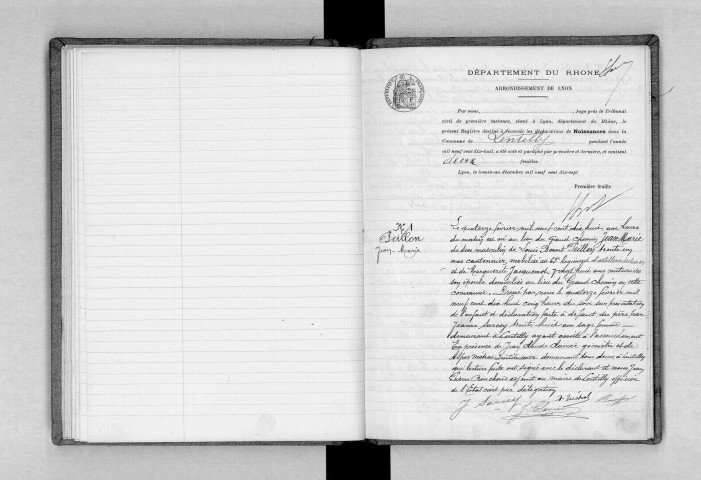 DÉPARTEMENT DU RHONE
ARRONDISSEMENT DE LYON
Par nous, , Juge près le Tribunal
civil de première instance, séant à Lyon, département du Rhône, le
présent Registre destiné à recevoir les déclarations de Naissances dans la
Commune de Lentilly pendant l'année
mil neuf cent dix-huit, a été coté et paraphé par première et dernière, et contient
deux feuilles.
Lyon, le trente-un décembre mil neuf cent dix-sept
Première feuille
N° 1
Peillon
Jean-Marie
Le quatorze février mil neuf cent dix huit une heure
du matin est né au lieu du Grand chemin Jean Marie
de sexe masculin de Louis Benoit Peillon trente un
ans cantonnier, mobilisé au Régiment d'artillerie
et de Marguerite Jacquemot vingt huit ans couturière
son épouse domiciliés au lieu du Grand Chemin en cette
commune. Dressé par nous le quatorze février mil
neuf cent dix huit cinq heures du soir sur présentation
de l'enfant et déclaration faite à défaut du père par
Jeanne Sarcey trente huit ans sage femme
demeurant à Lentilly ayant assisté à l'accouchement
En présence de Jean Claude géomètre et de
demeurant tous deux à Lentilly
qui lecture faite ont signé avec le déclarant et nous Jean
Pierre adjoint au maire de Lentilly officier
de l'Etat civil par délégation
J Sarcey